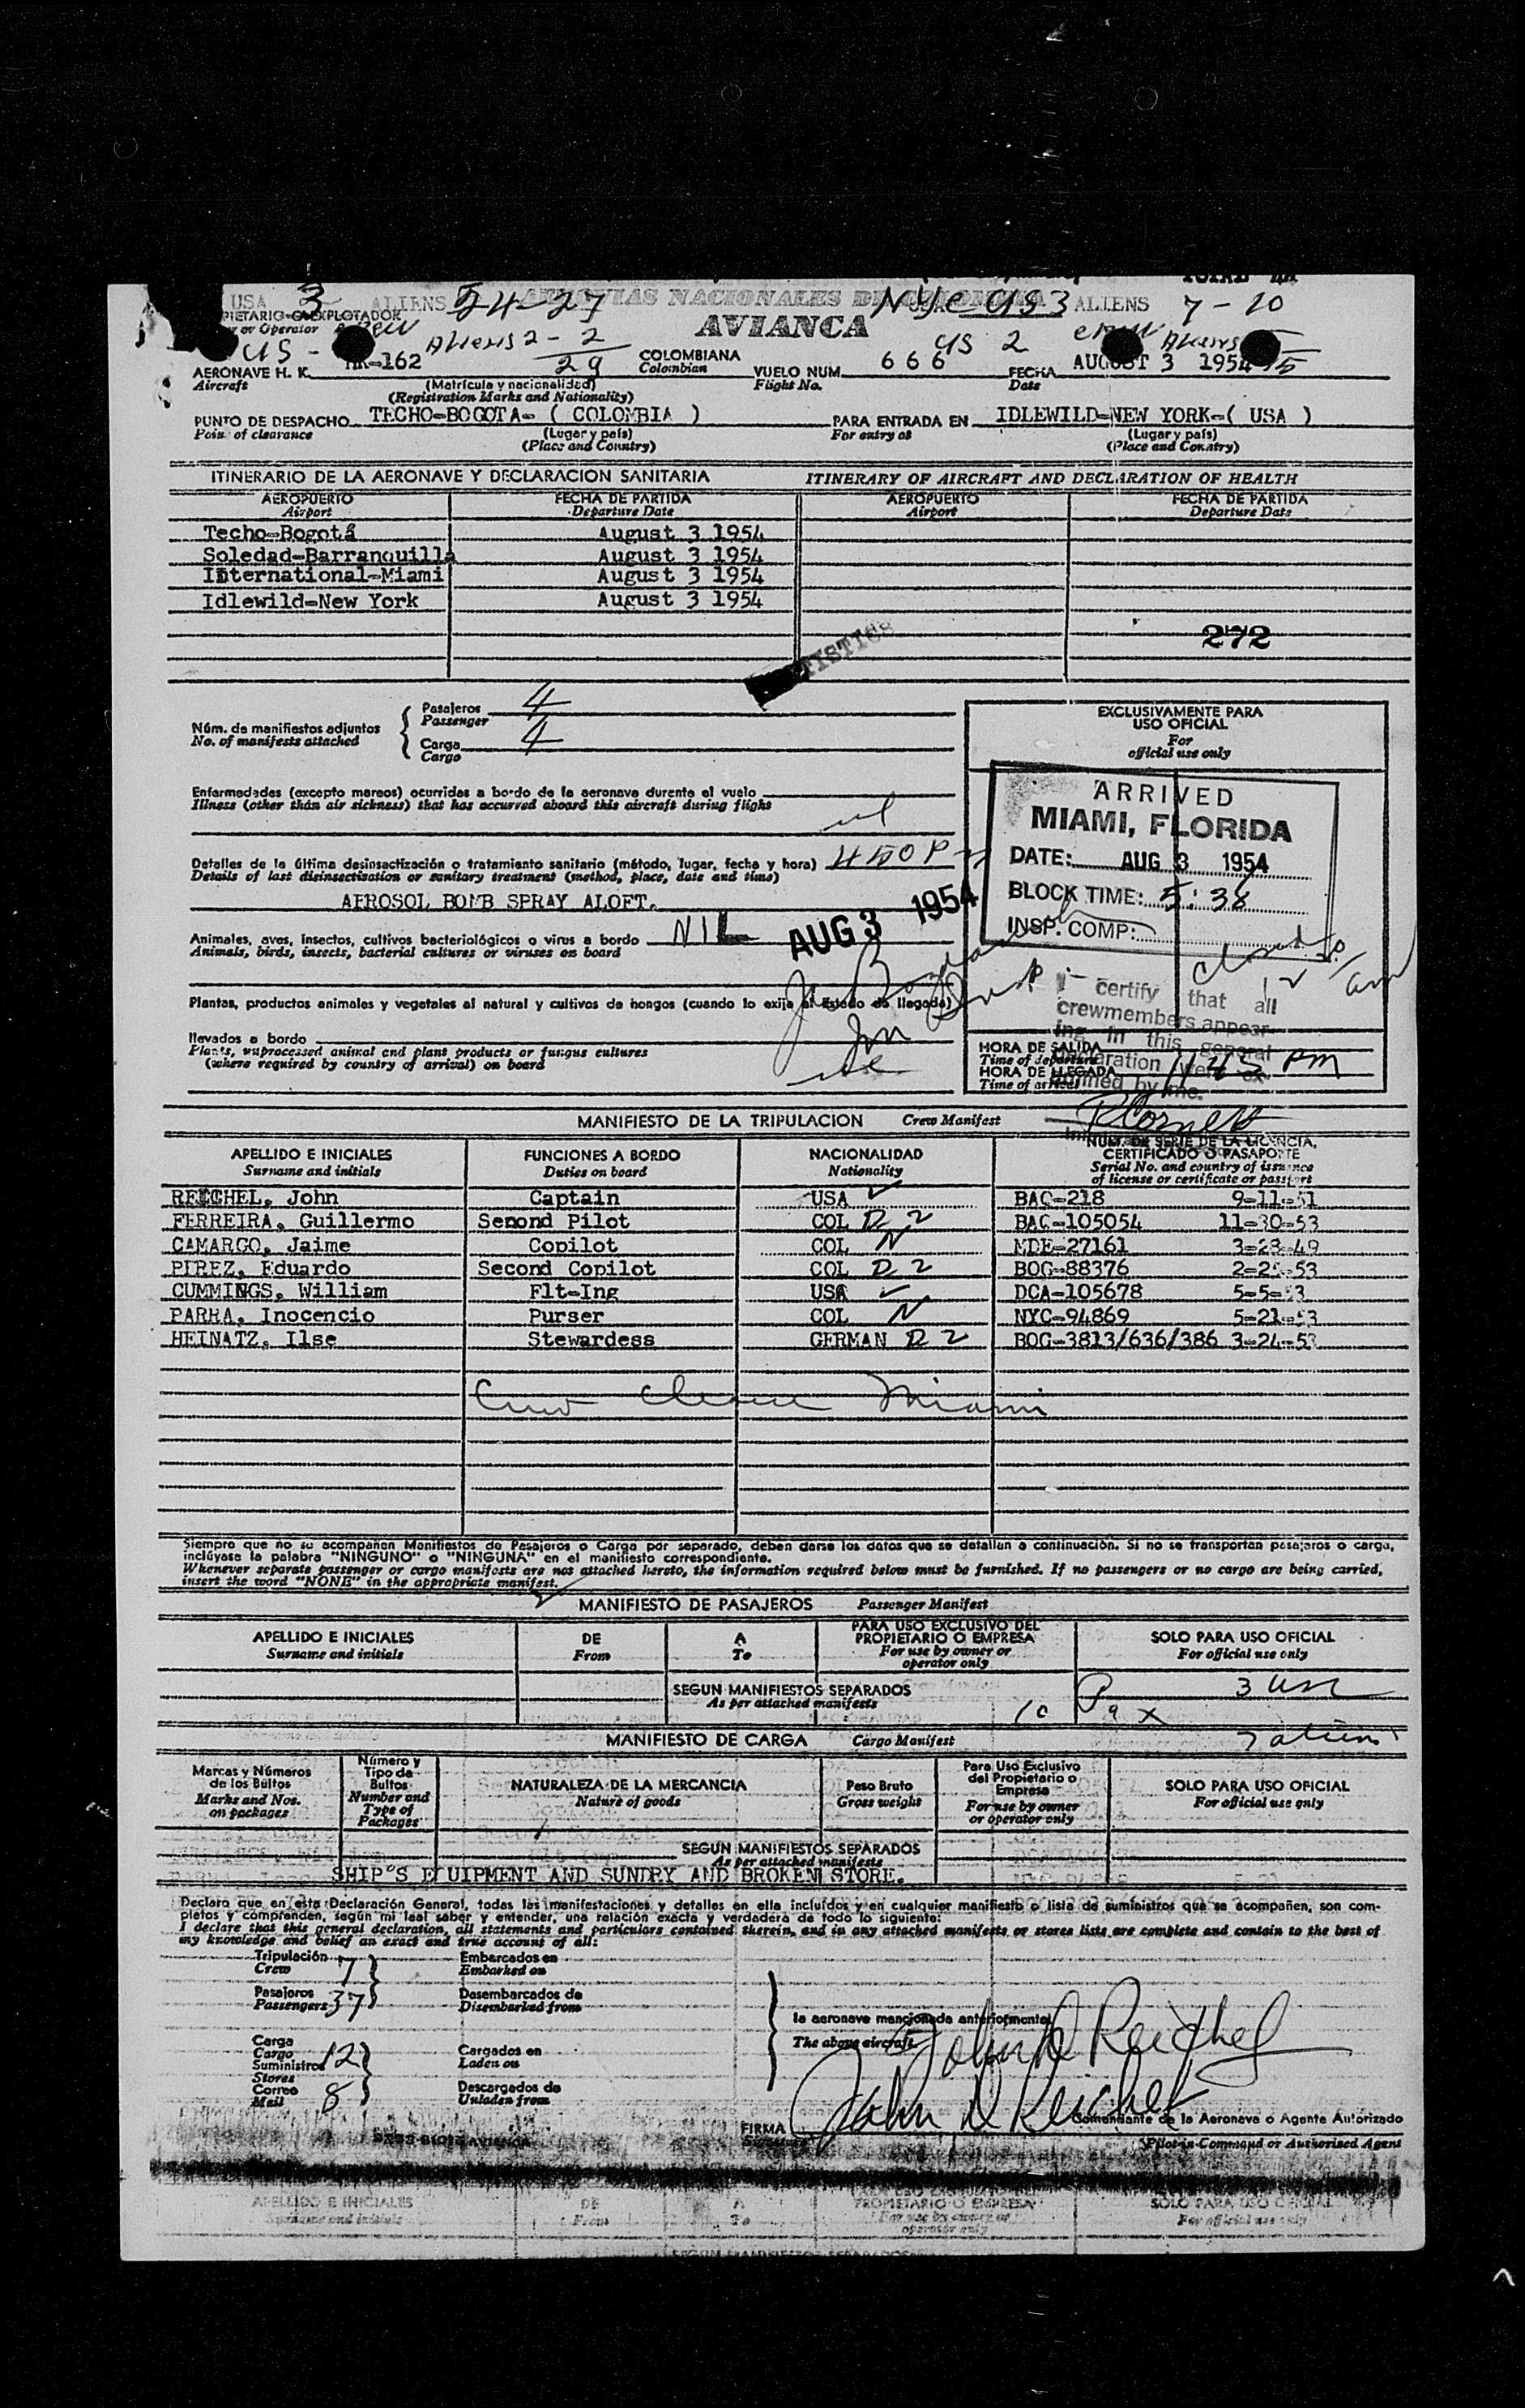 USA 3 ALIENS 24-27 AEROVIAS NACIONALES DE COLOMBIA NYC US 3 ALIENS 7-10
AVIANCA
US - Aliens 2 - 2 US 2 crew Aliens
29
AERONAVE H. K. HK-162 COLOMBIANA VUELO NUM. 666 FECHA AUGUST 3 1954
Aircraft Colombian Flight No. Date
(Matrícula y nacionalidad)
(Registration Marks and Nationality)
PUNTO DE DESPACHO TECHO-BOGOTA- ( COLOMBIA ) PARA ENTRADA EN IDLEWILD-NEW YORK-( USA )
Point of clearance (Lugar y país) For entry at (Lugar y país)
(Place and Country) (Place and Country)
ITINERARIO DE LA AERONAVE Y DECLARACION SANITARIA ITINERARY OF AIRCRAFT AND DECLARATION OF HEALTH
AEROPUERTO FECHA DE PARTIDA AEROPUERTO FECHA DE PARTIDA
Airport Departure Date Airport Departure Date
Techo-Bogotá August 3 1954
Soledad-Barranquilla August 3 1954
International-Miami August 3 1954
Idlewild-New York August 3 1954
272
Núm. de manifiestos adjuntos Pasajeros 4
No. of manifests attached Passenger
Carga 4
Cargo
EXCLUSIVAMENTE PARA
USO OFICIAL
For
official use only
Enfermedades (excepto mareos) ocurridas a bordo de la aeronave durente el vuelo
Illness (other than air sickness) that has occurred aboard this aircraft during flight
ARRIVED
MIAMI, FLORIDA
DATE: AUG 3 1954
BLOCK TIME: 5:38
INSP. COMP:
Detalles de la última desinsectización o tratamiento sanitario (método, lugar, fecha y hora) 450P
Details of last disinsectization or sanitary treatment (method, place, date and time)
AEROSOL BOMB SPRAY ALOFT.
AUG 3 1954
Animales, aves, insectos, cultivos bacteriológicos o virus a bordo NIL
Animals, birds, insects, bacterial cultures or viruses on board
Plantas, productos animales y vegetales al natural y cultivos de hongos (cuando lo exija el Estado de llegada)
llevados a bordo
Plants, unprocessed animal and plant products or fungus cultures
(where required by country of arrival) on board
I certify that all
crewmembers appear-
ing in this general
declaration were ex-
amined by me.
HORA DE SALIDA
Time of departure
HORA DE LLEGADA 1145 PM
Time of arrival
MANIFIESTO DE LA TRIPULACION Crew Manifest
APELLIDO E INICIALES FUNCIONES A BORDO NACIONALIDAD NUM. DE SERIE DE LA LICENCIA,
Surname and initials Duties on board Nationality CERTIFICADO O PASAPORTE
Serial No. and country of issuance
of license or certificate or passport
REICHEL, John Captain USA BAQ-218 9-11-51
FERREIRA, Guillermo Second Pilot COL D 2 BAQ-105054 11-30-53
CAMARGO, Jaime Copilot COL N MDE-27161 3-28-49
PIREZ, Eduardo Second Copilot COL D 2 BOG-88376
CUMMINGS, William Flt-Ing USA DCA-105678
PARRA, Inocencio Purser COL N NYC-94869 5-21-53
HEINATZ, Ilse Stewardess GERMAN D 2 BOG-3813/636/386 3-24-53
Crew Miami
Siempre que no se acompañen Manifiestos de Pasajeros o Carga por separado, deben darse los datos que se detallan a continuación. Si no se transportan pasajeros o carga,
inclúyase la palabra "NINGUNO" o "NINGUNA" en el manifiesto correspondiente.
Whenever separate passenger or cargo manifests are not attached hereto, the information required below must be furnished. If no passengers or no cargo are being carried,
insert the word "NONE" in the appropriate manifest.
MANIFIESTO DE PASAJEROS Passenger Manifest
APELLIDO E INICIALES DE A PARA USO EXCLUSIVO DEL PROPIETARIO O EMPRESA SOLO PARA USO OFICIAL
Surname and initials From To For use by owner or operator only For official use only
SEGUN MANIFIESTOS SEPARADOS
As per attached manifests
10 Pax
MANIFIESTO DE CARGA Cargo Manifest
Marcas y Números de los Bultos Número y Tipo de Bultos NATURALEZA DE LA MERCANCIA Peso Bruto Para Uso Exclusivo del Propietario o Empresa SOLO PARA USO OFICIAL
Marks and Nos. on packages Number and Type of Packages Nature of goods Gross weight For use by owner or operator only For official use only
SEGUN MANIFIESTOS SEPARADOS
As per attached manifests
SHIP'S EQUIPMENT AND SUNDRY AND BROKEN STORE.
Declaro que en esta Declaración General, todas las manifestaciones y detalles en ella incluídos y en cualquier manifiesto o lista de suministros que se acompañen, son com-
pletos y comprenden, según mi leal saber y entender, una relación exacta y verdadera de todo lo siguiente:
I declare that this general declaration, all statements and particulars contained therein, and in any attached manifests or stores lists are complete and contain to the best of
my knowledge and belief an exact and true account of all:
Tripulación 7 Embarcados en
Crew Embarked on
Pasajeros 37 Desembarcados de
Passengers Disembarked from
la aeronave mencionada anteriormente
The above aircraft
John D Reichel
Carga
Cargo 12 Cargados en
Suministros Laden on
Stores
Correo 8 Descargados de
Mail Unladen from
John D Reichel
FIRMA Comandante de la Aeronave o Agente Autorizado
Signature Pilot-in-Command or Authorized Agent
APELLIDO E INICIALES DE A PROPIETARIO O EMPRESA SOLO PARA USO OFICIAL